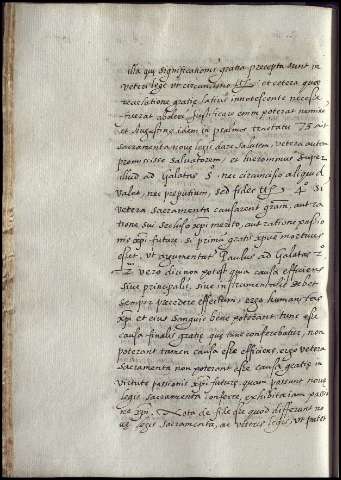 illa qui significationis gratia precepta sunt in
veteri lege ut circuncisio et cetera quae
revelatione gratie latius innotescente necesse
fuerat aboleri. Justificare enim poterat nemine
et Augustinus idem in psalmos tractatu 73 ait
sacramenta nove legis dare salutem, vetera autem
promisisse salvatorem, et hieronimus super
illud ad Galatas 5 nec circuncisio aliquid
valet, nec preputium, sed fides 4º si
vetera sacramenta causarent gram, aut ra
tione sui secluso xpi merito, aut ratione passio
nis xpi future, si prima gratis xpus mortuus
esset, ut argumentatur Paulus ad Galatas 2º
2ª vero dici non potest quia causa efficiens
sive principalis, sive instrumentalis debet
semper precedere effectum, ergo humanitas
xpi et eius sanguis bene poterant tunc esse
causa finalis gratie que tunc conferebatur, non
poterant tamen causa esse efficiens, ergo vetera
sacramenta non poterant esse causa gratie in
virtute passionis xpi future, quam possunt nove
legis sacramenta conferre, exhibita iam passio
ne xpi. Nota de fide esse quod differunt no
ve legis sacramenta, ac veteris legis, ut patet